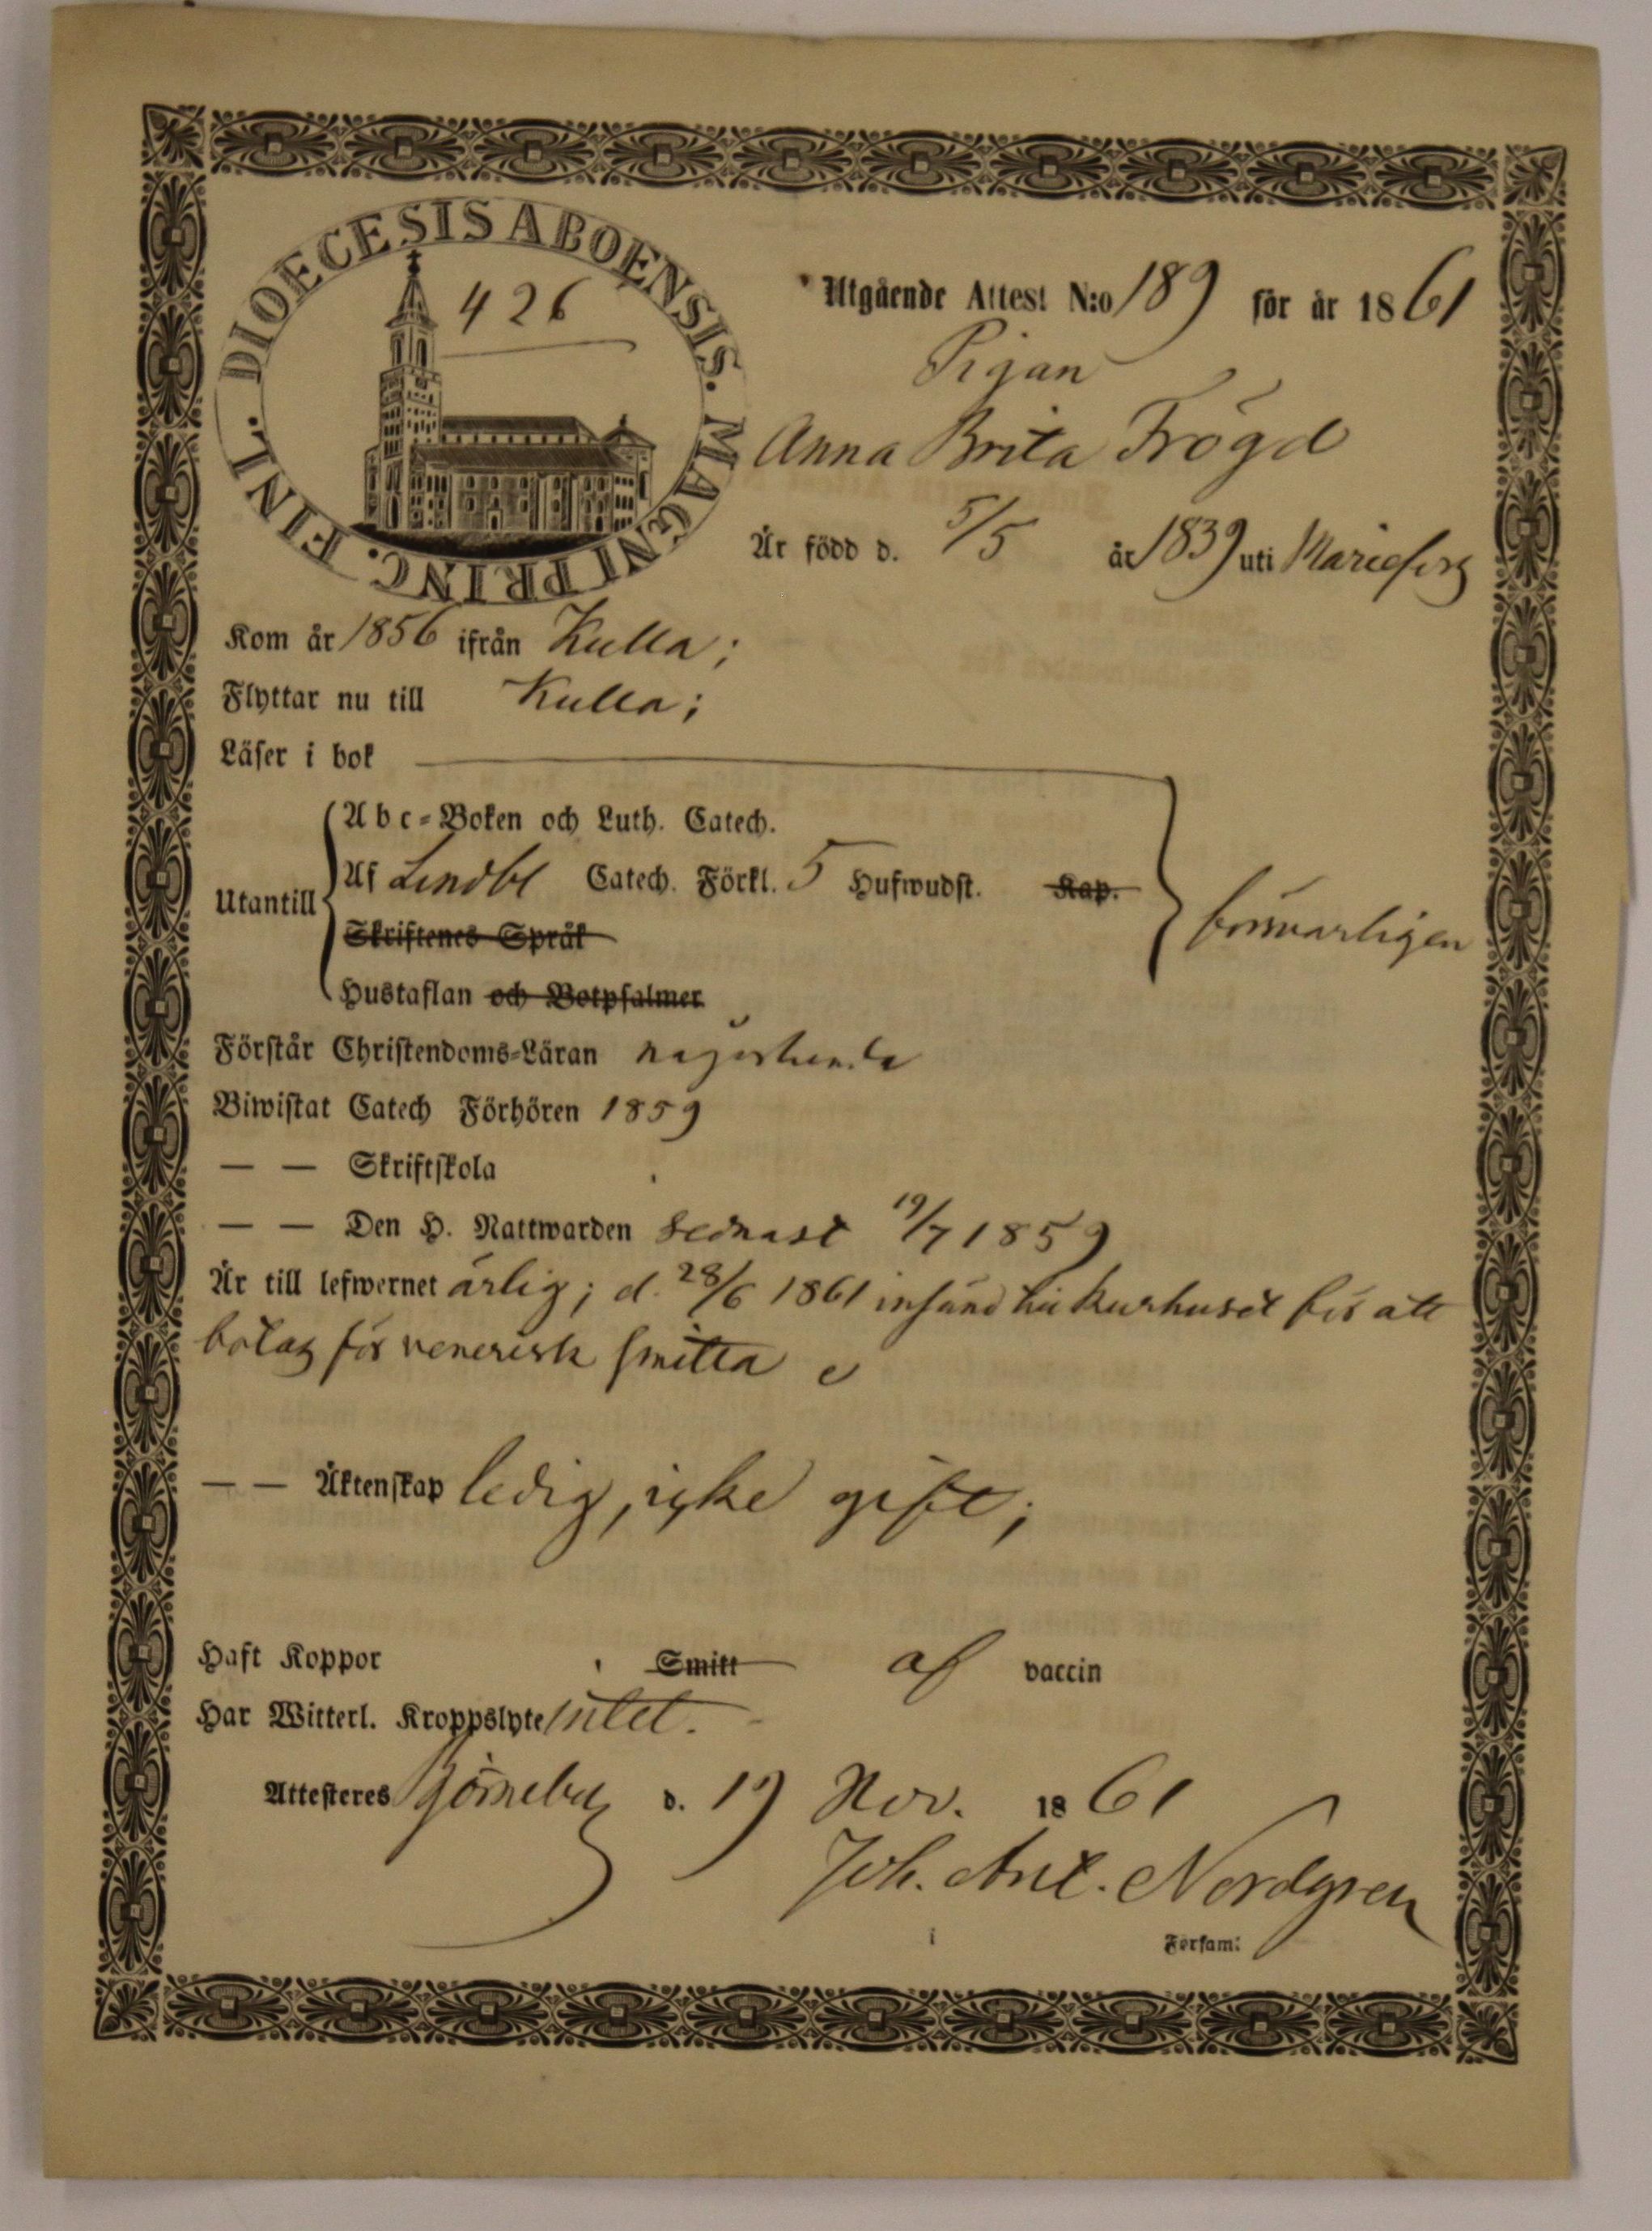 DIOECESIS ABOENSIS. MAGNI PRINC. FINL.
426
Utgående Attest N:o 189 för år 1861
Pigan
Anna Brita Frögd
Är född d. 5/5 år 1839 uti
Kom år 1856 ifrån Kulla;
Flyttar nu till Kulla;
Läser i bok
Utantill
Abc-Boken och Luth. Catech.
Af Lindbl Catech. Förkl. 5 Hufwudst. Kap.
Skriftenes Språk
Hustaflan och Botpsalmer
försvarligen
Förstår Christendoms-Läran någorlunda
Biwistat Catech Förhören 1859
— — Skriftskola
— — Den H. Nattwarden sednast 19/7 1859
Är till lefwernet ärlig; d. 28/6 1861 insänd till kurhuset för att
botas för venerisk smitta
— — Äktenskap ledig, icke gift;
Haft Koppor Smitt af vaccin
Har Witterl. Kroppslyte intet.
Attesteres Björneborg d. 19 Nov. 1861
Joh. Ant. Nordgren
i Försam: